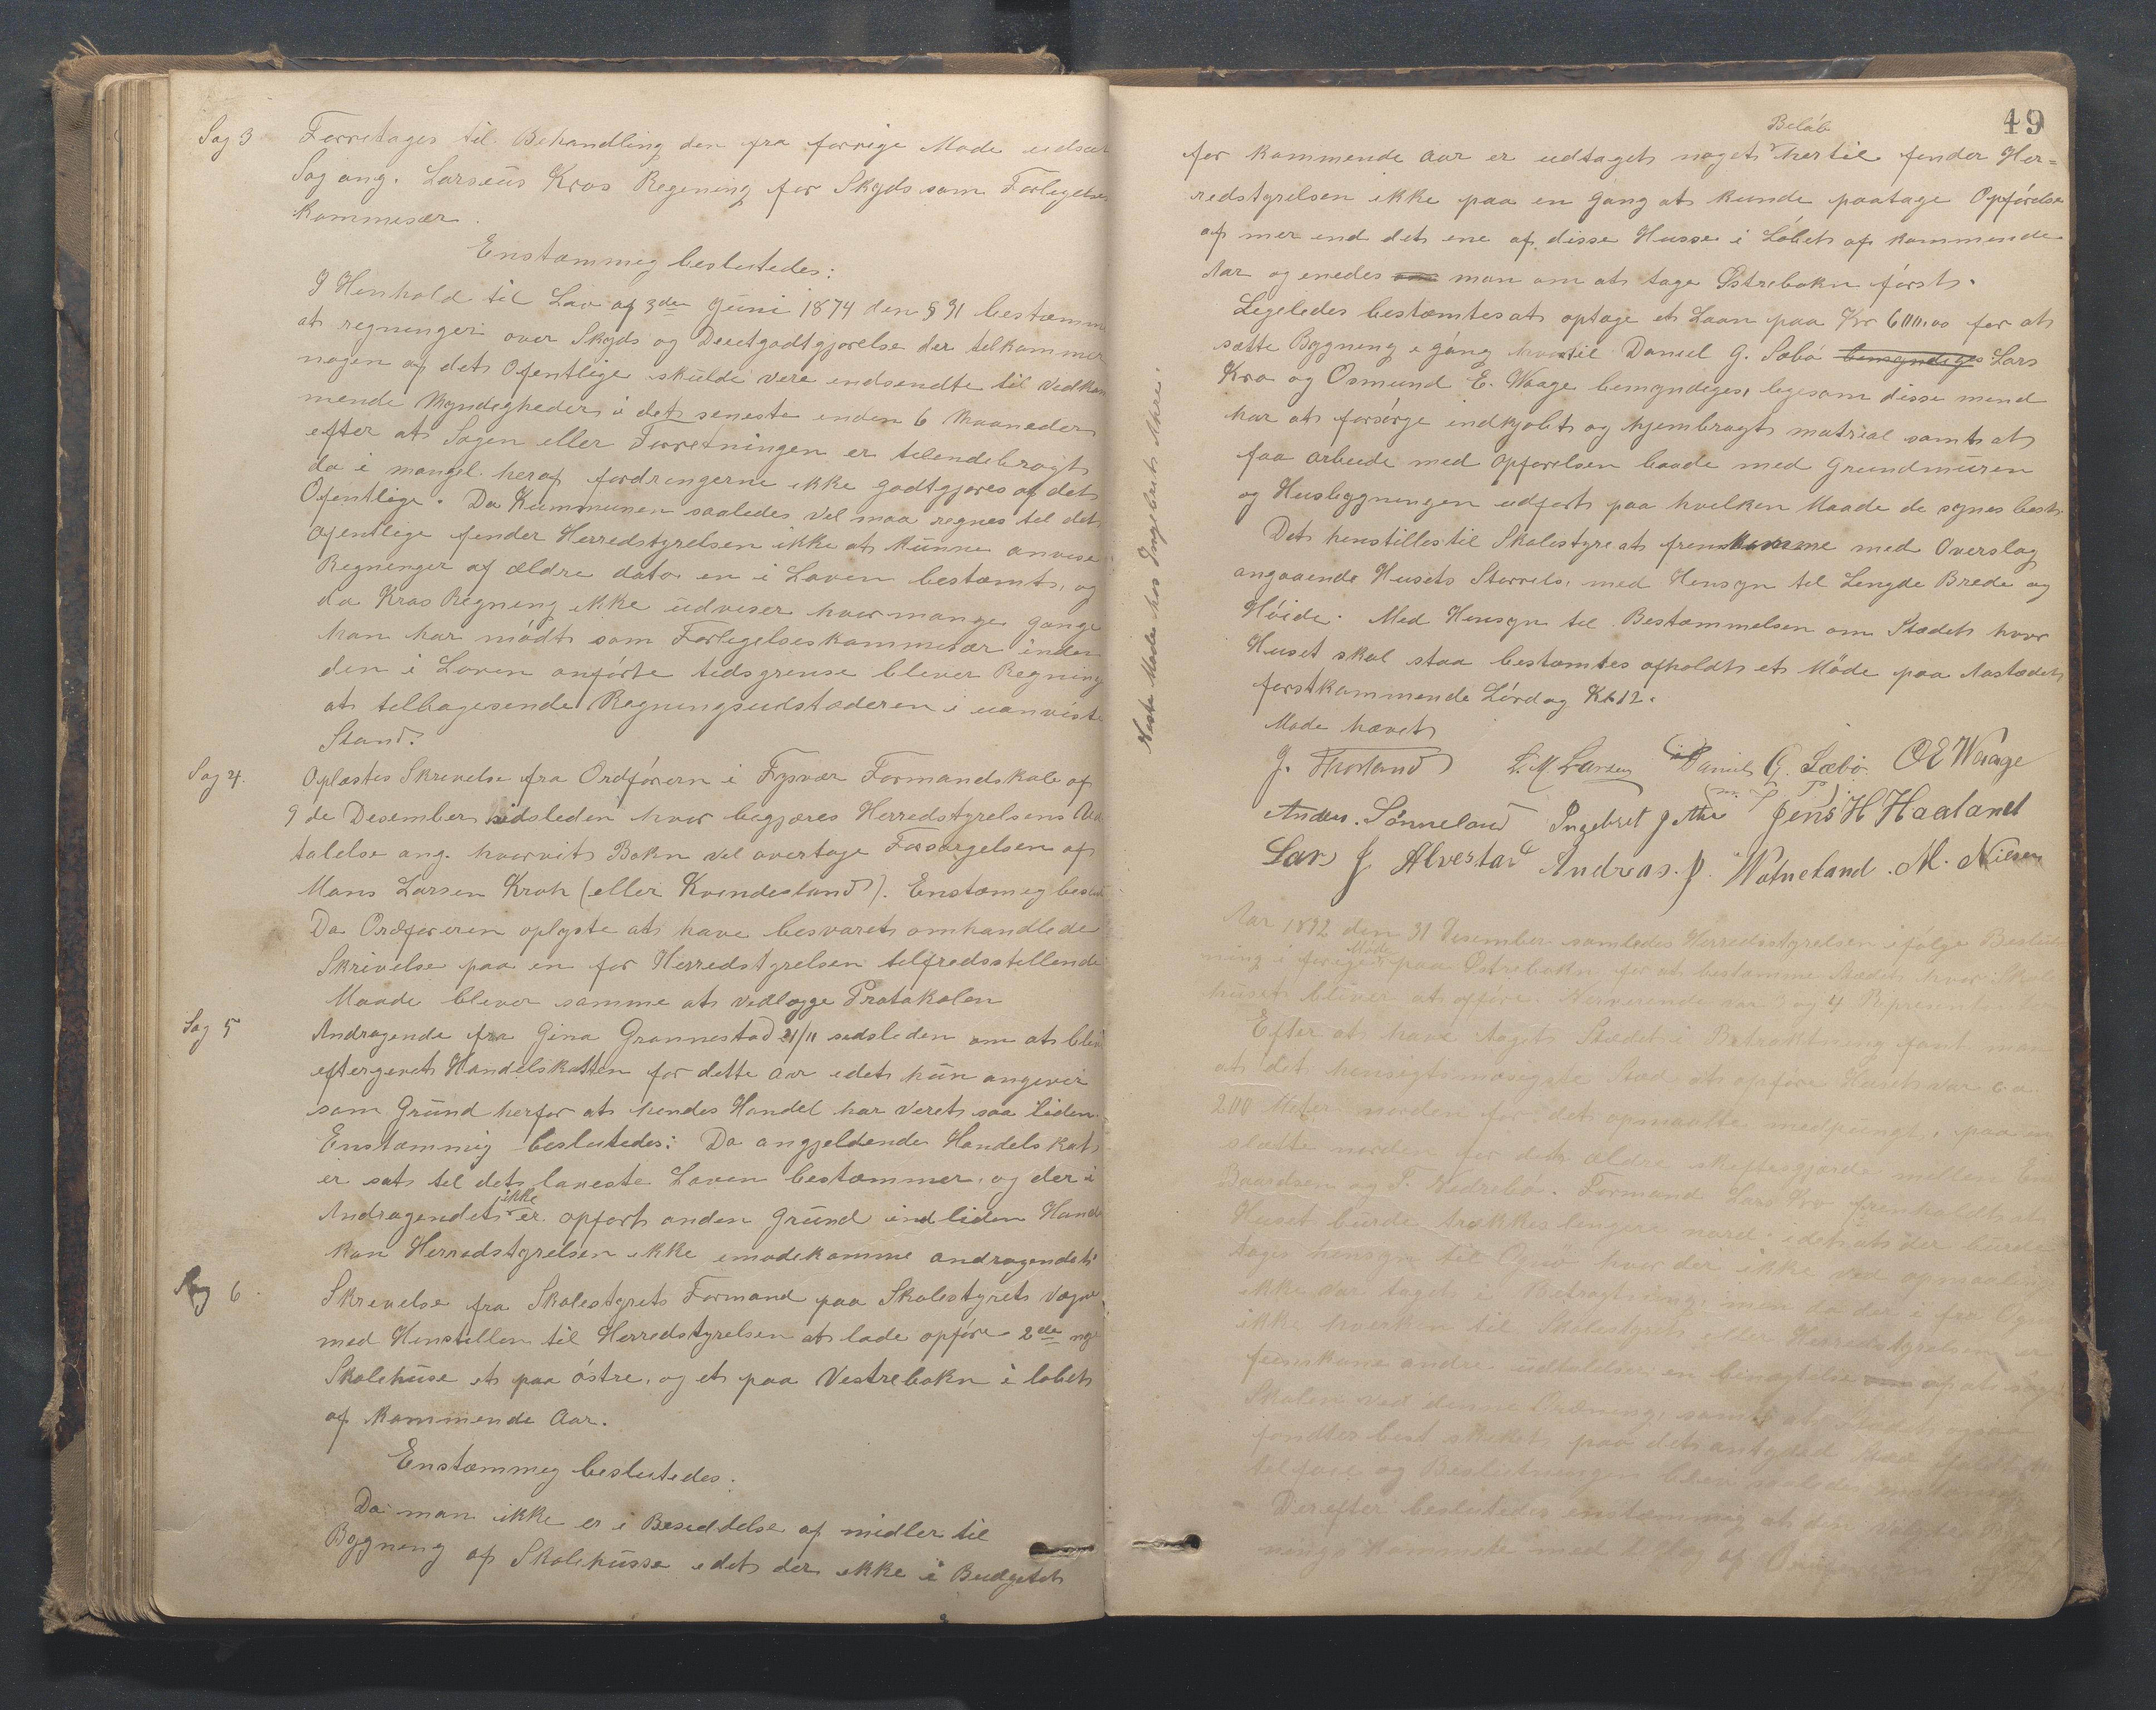 Sag 3 Forretages til Behandling den fra forrige Mode udsat
Sag ang. Larseüs Kros Regening for Skyds som Forlegelses
Kommisær.
Enstæmmeg beslutedes:
I Henhold til Lov af 3de Juni 1874 den § 31 bestæmm
at regninger over Skyds og Deietgodtgjørelse der tilkommer
nogen af det Ofentlige skulde vere endsendte til Vedkom
mende Myndegheder i det seneste enden 6 Maaneder
efter at Sagen eller Forretningen er telendebragt
da i mangel heraf fordringerne ikke godtgjøres af det
Ofentlige. Da Kummunen saaledes vel maa regnes til det
ofentlige fender Herredstyrelsen ikke at kunne anvise
Regninger af ældre dato en i Loven bestæmt, og
da Kros Regning ikke üdviser hvormange gange
han har mødt som Forlegelseskommesær inden
den i Loven anførte tidsgrense blever Regning
at telbagesende Regningsudstæderen i uanviste
Stand.
Sag 4. Oplæstes Skrevelse fra Ordførern i Tysvær Formandskab af
9 de Desember sidsleden hvor begjæres Herredstyrelsens Ud
talelse ang. hvorvit Bokn vel overtage Forsørgelsen af
Mons Larsen Kroh (eller Kvendesland). Enstæmeg beslut
Da Ordføreren oplyste at have besvaret omhandlede
Skrivelse paa en for Herredstyrelsen telfredsstellende
Maade blever samme at vedlægge Protakolen
Sag 5 Andragende fra Gina Grønnestad 21/11 sidsleden om at bleve
eftergevet Handelskatten for dette Aar edet hün angever
som Gründ herfor at hendes Handel har veret saa liden.
Enstæmmig beslutedes: Da angjeldende Handelskat
er sat tel det laveste Loven bestæmmer, og der i
ikke
Andragendet er opført anden Gründ end liden Hand
kan Herredstyrelsen ikke emødekomme andragendet
Sag 6. Skrevelse fra Skolestyrets Formand paa Skolestyrets Vegne
med Henstellen til Herredstyrelsen at lade opføre 2de nye
Skolehüse et paa østre, og et paa Vestrebokn i løbet
af kommende Aar.
Enstæmmeg beslutedes:
Da man ikke er i Beseddelse af midler til
Bygneng af Skolehüsse edet der ikke i Budgetet
Neste Møde hos Ingebret Ahre.
49
Beløb
for kommende Aar er udtaget noget hertil fender Her=
redstyrelsen ikke paa en gang at kunde paatage Opførelse
af mer end det ene af disse Husse i Løbet af kommende
Aar og enedes man om at tage Østrebokn først.
Legeledes bestæmtes at optage et Laan paa Kr 600.00 for at
sætte Bygneng e gang hvortil Daniel G. Sæbø bemyndiges Lars
Kro og Osmund E. Waage bemyndiges, legesom disse mend
har at forsørge indkjøbt og hjembragt matreal samt at
faa arbeide med Opførelsen baade med Grundmüren
og Husbygningen udført paa hvelken Maade de synes best
Det henstilles til Skolestyre at fremkomme med Overslag
angaaende Husets Størrels, med Hensyn tel Lengde Brede og
Høide. Med Hensyn tel Bestæmmelsen om Stædet hvor
Huset skal staa bestæmtes afholdt et Møde paa Aastædet
førstkommende Lørdag Kl 12.
Møde hævet
J. Thorland L. M Larsen Daniel G. Sæbø OE Waage
(m. P. P.)
Anders. Sønneland Ingebret J Ahre Jens H Haaland
Lars J Alvestad Andreas. J. Watneland. M. Nilsen
Aar 1892 den 31 Desember samledes Herredsstyrelsen ifølge Beslut
Møde
ning i forige paa Østrebokn for at bestæmme Stædet hvor Skole
huset bliver at opføre. Nerverende var 3 og 4 Representanter
Efter at have taget Stædet i Betraktning fant man
at det hensigtsmæsigste Stæd at opføre Huset var c.a.
200 Meter norden for det opmaalte medpungt, paa en
slætte norden for det ældre skeftesgjærde mellem
Baardsen og T. Vedrebø. Formand Lars Kro fremholdt at
Huset bürde trækkes lengere nord idet at der bürde
tages hensyn til Ognø hvor der ikke ved opmaaling
ikke var taget i Betragtning, men da der i fra Ognø
ikke hverken til Skolestyret eller Herredstyrelsen er
fremkome andre üdtalelser en benægtelse af at søge
Skolen ved denne Ordneng, samt at Stædet
fandtes best skeket paa det antyded
og Beslutningen blev saaledes enstæmeg
Derefter beslutedes enstæmmeg at den
nings kommete med